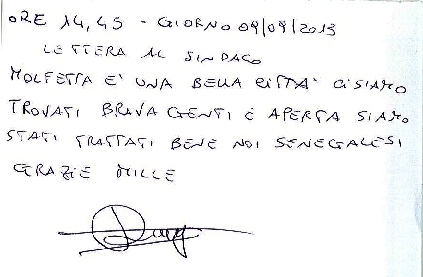 ORE 14,45 - GIORNO 09/09/2013
LETTERA AL SINDACO
MOLFETTA E' UNA BELLA CITTA' CISIAMO
TROVATI BRAVA GENTI E APERTA SIAMO
STATI TRATTATI BENE NOI SENEGALESI
GRAZIE MILLE